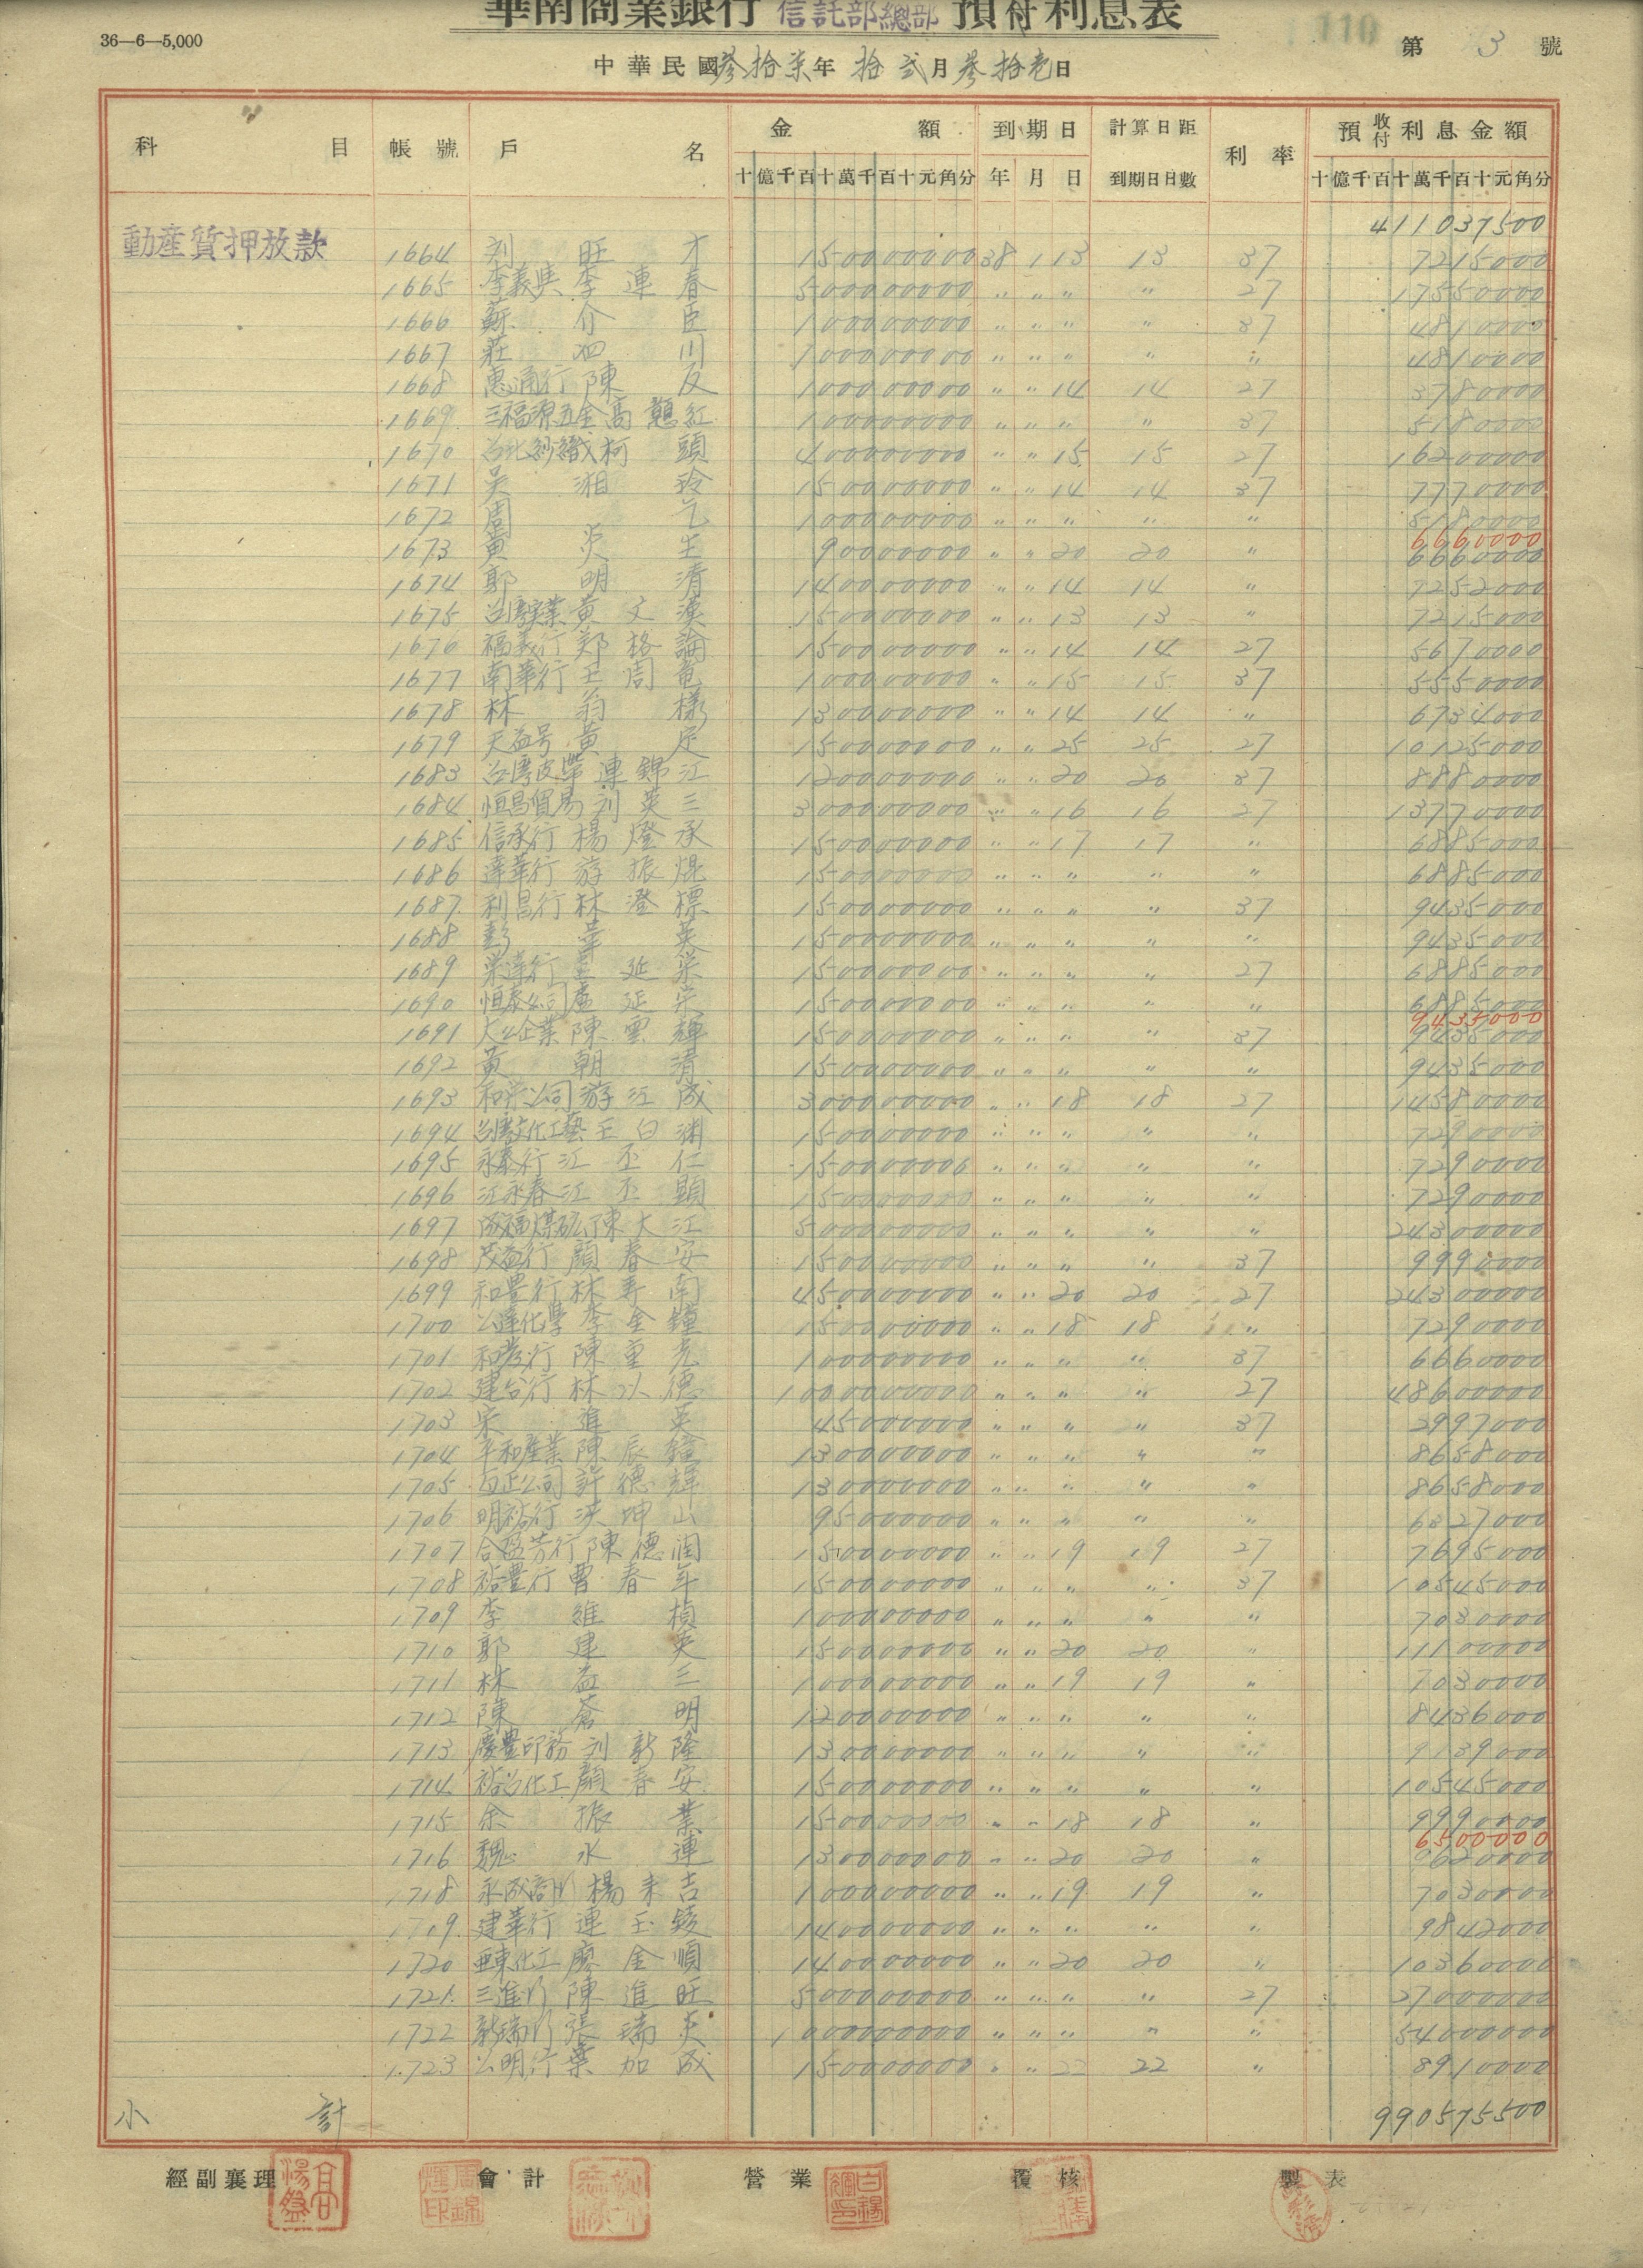 華南商業銀行 信託部總部 預付利息表
36—6—5,000
110
第 3 號
中華民國參拾柒年拾弍月參拾壱日
科目 帳號 戶名 金額 到期日 計算日距到期日日數 利率 預收付利息金額
十億千百十萬千百十元角分 年 月 日 十億千百十萬千百十元角分
411037500
動產質押放款
1664 刘旺才 1500000000 38 1 13 13 37 7215000
1665 李義興 李連春 5000000000 〃 〃 〃 〃 27 17550000
1666 蘇介臣 1000000000 〃 〃 〃 〃 37 4810000
1667 莊泗川 1000000000 〃 〃 〃 〃 〃 4810000
1668 惠通行 陳反 1000000000 〃 〃 14 14 27 3780000
1669 三福源五金 高紅 1000000000 〃 〃 〃 〃 37 5180000
1670 台北紗織 柯頭 4000000000 〃 〃 15 15 27 16200000
1671 吳湘玲 1500000000 〃 〃 14 14 37 7770000
1672 周乞 1000000000 〃 〃 〃 〃 〃 5180000
6660000
1673 黃炎生 900000000 〃 〃 20 20 〃 6660000
1674 郭明清 1400000000 〃 〃 14 14 〃 7252000
1675 黃文漢 1500000000 〃 〃 13 13 〃 7215000
1676 福義行 鄭格論 1500000000 〃 〃 14 14 27 5670000
1677 南華行 王周竜 1000000000 〃 〃 15 15 37 5550000
1678 林翁樣 1300000000 〃 〃 14 14 〃 6734000
1679 天益号 黃足 1500000000 〃 〃 25 25 27 10125000
1683 台湾皮革 連錦江 1200000000 〃 〃 20 20 37 8880000
1684 恒昌貿易 刘英三 3000000000 〃 〃 16 16 27 13770000
1685 信承行 楊燈承 1500000000 〃 〃 17 17 〃 6885000
1686 達華行 游振焜 1500000000 〃 〃 〃 〃 〃 6885000
1687 利昌行 林澄標 1500000000 〃 〃 〃 〃 37 9435000
1688 彭華英 1500000000 〃 〃 〃 〃 〃 9435000
1689 榮達行 延榮 1500000000 〃 〃 〃 〃 27 6885000
1690 恒泰公司 盧延宗 1500000000 〃 〃 〃 〃 〃 6885000
9435000
1691 大公企業 陳雲輝 1500000000 〃 〃 〃 〃 37 9435000
1692 黃朝清 1500000000 〃 〃 〃 〃 〃 9435000
1693 和宗公司 游江成 3000000000 〃 〃 18 18 27 14580000
1694 台湾文化工藝 王白渊 1500000000 〃 〃 〃 〃 〃 7290000
1695 永泰行 江丕仁 1500000000 〃 〃 〃 〃 〃 7290000
1696 江永春 江丕顕 1500000000 〃 〃 〃 〃 〃 7290000
1697 成福煤矿 陳大江 5000000000 〃 〃 〃 〃 〃 24300000
1698 茂益行 顏春安 1500000000 〃 〃 〃 〃 37 9990000
1699 和豊行 林寿南 4500000000 〃 〃 20 20 27 24300000
1700 公達化學 李金鐘 1500000000 〃 〃 18 18 〃 7290000
1701 和発行 陳重光 1000000000 〃 〃 〃 〃 37 6660000
1702 建台行 林以德 10000000000 〃 〃 〃 〃 27 48600000
1703 宋進英 450000000 〃 〃 〃 〃 37 2997000
1704 平和產業 陳辰鐘 1300000000 〃 〃 〃 〃 〃 8658000
1705 百正公司 許德輝 1300000000 〃 〃 〃 〃 〃 8658000
1706 明裕行 洪坤山 950000000 〃 〃 〃 〃 〃 6327000
1707 合盈芳行 陳德潤 1500000000 〃 〃 19 19 27 7695000
1708 裕豊行 曹春年 1500000000 〃 〃 〃 〃 37 10545000
1709 李維楨 1000000000 〃 〃 〃 〃 〃 7030000
1710 郭建英 1500000000 〃 〃 20 20 〃 11100000
1711 林益三 1000000000 〃 〃 19 19 〃 7030000
1712 陳蒼明 1200000000 〃 〃 〃 〃 〃 8436000
1713 慶豊印務 刘新隆 1300000000 〃 〃 〃 〃 〃 9139000
1714 裕台化工 顏春安 1500000000 〃 〃 〃 〃 〃 10545000
1715 余振業 1500000000 〃 〃 18 18 〃 9990000
6500000
1716 魏水連 1300000000 〃 〃 20 20 〃 9620000
1718 永成商行 楊来吉 1000000000 〃 〃 19 19 〃 7030000
1709 建華行 連玉鍰 1400000000 〃 〃 〃 〃 〃 9842000
1720 亜東化工 廖金順 1400000000 〃 〃 20 20 〃 10360000
1721 三進行 陳進旺 5000000000 〃 〃 〃 〃 27 27000000
1722 新瑞行 張瑞炎 10000000000 〃 〃 〃 〃 〃 54000000
1723 公明行 葉加成 1500000000 〃 〃 22 22 〃 8910000
小計 990575500
經副襄理 會計 營業 覆核 製表